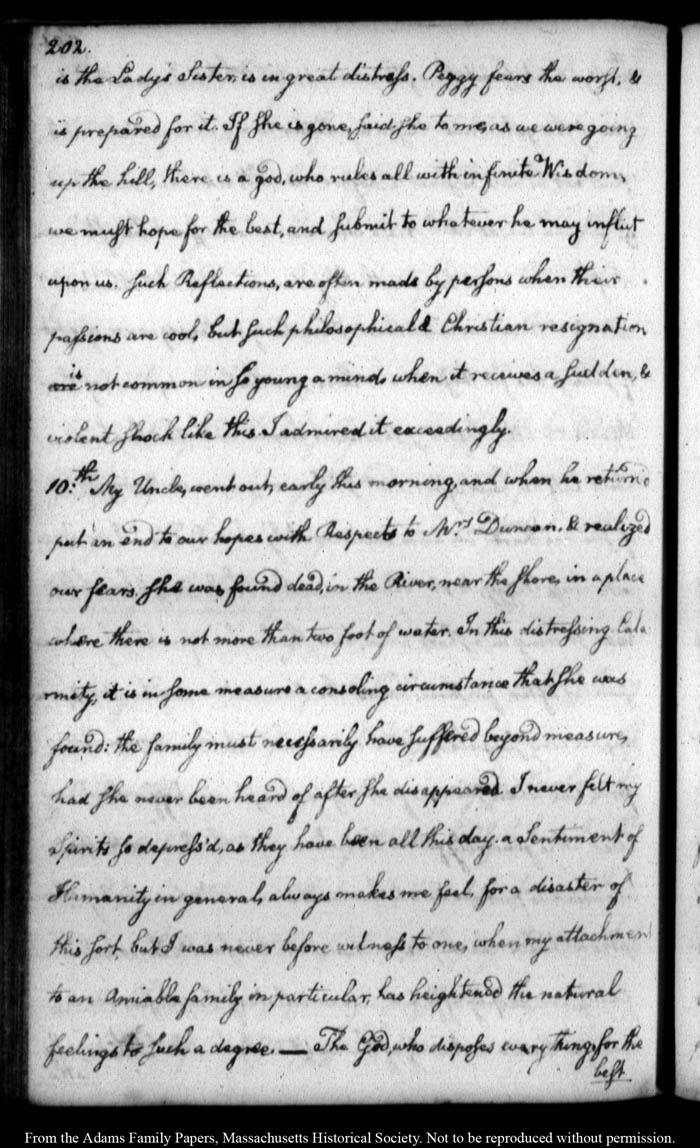 202.
is the Lady's Sister, is in great distress. Peggy fears the worst, &
is prepared for it. If she is gone, said she to me, as we were going
up the hill, there is a god, who rules all with infinite Wisdom,
we must hope for the best, and submit to whatever he may inflict
upon us. Such Reflections, are often made by persons when their
passions are cool, but such philosophical & Christian resignation
are is not common in so young a mind, when it receives a sudden, &
violent shock like this I admired it exceedingly.
10:th My Uncle, went out, early this morning, and when he return'd
put an end to our hopes with Respects to Mrs Duncan, & realized
our fears. She was found dead, in the River, near the shore, in a place
where there is not more than two foot of water. In this distressing Cala
mity, it is in some measure a consoling circumstance that she was
found: the family must necessarily have suffered beyond measure,
had she never been heard of after she disappeared. I never felt my
Spirits so depress'd, as they have been all this day. a Sentiment of
Humanity in general, always makes me feel, for a disaster of
this sort, but I was never before witness to one, when my attachment
to an Amiable family in particular, has heightened the natural
feelings to such a degree. — The God, who disposes every thing, for the
best
From the Adams Family Papers, Massachusetts Historical Society. Not to be reproduced without permission.